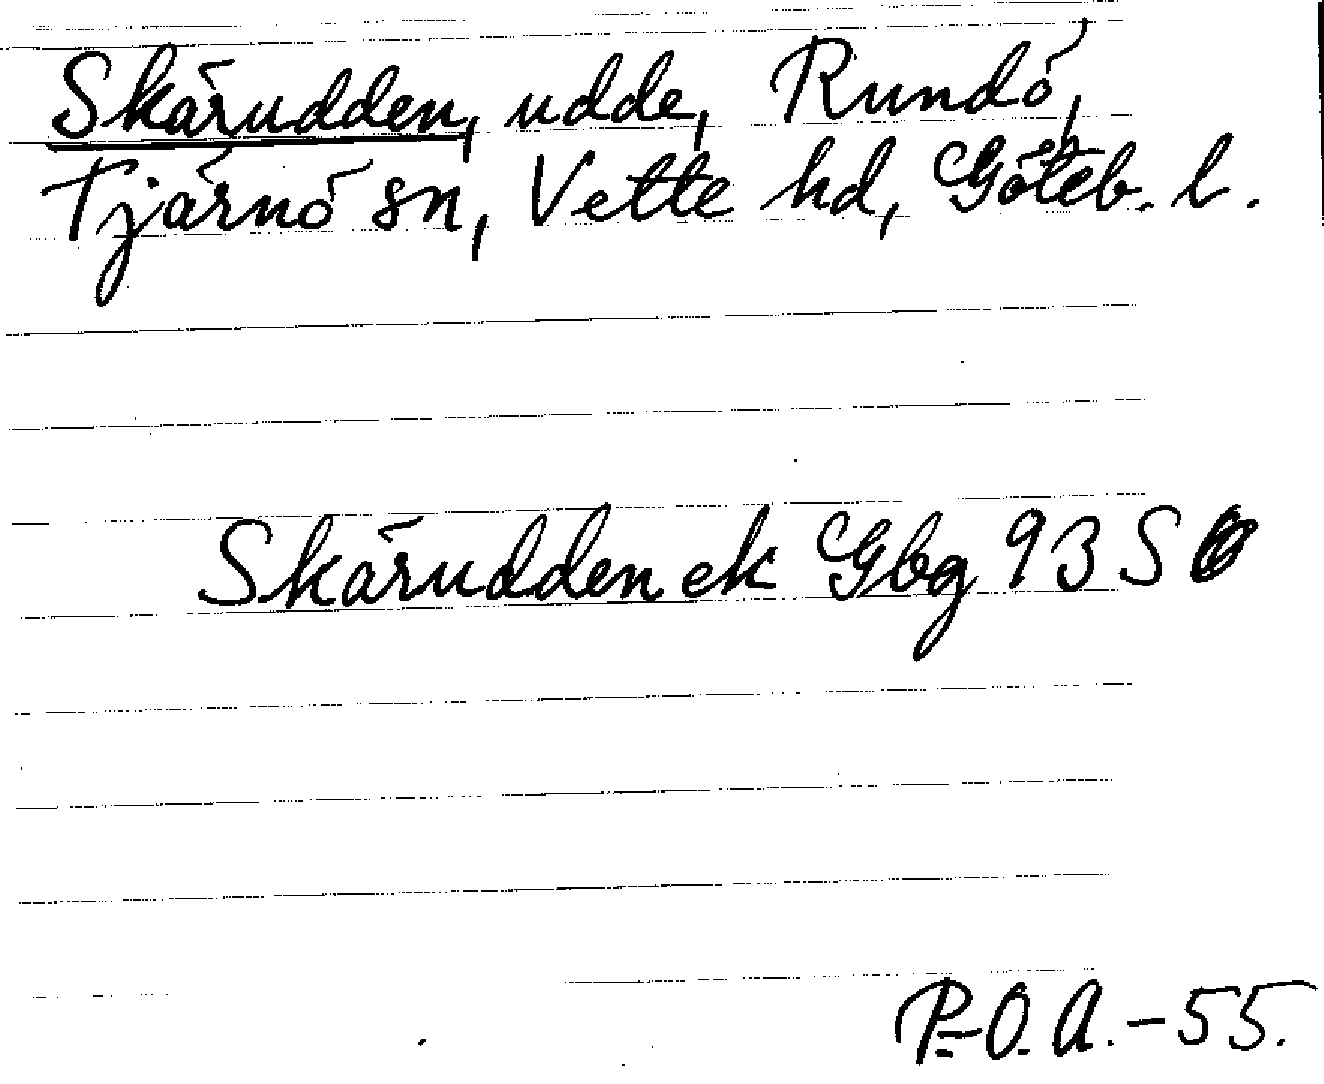 Skärudden, udde, Rundö,
Tjärnö sn, Vette hd, Göteb. l.
Skärudden ek Gbg 93 SO
P-O.A.-55.